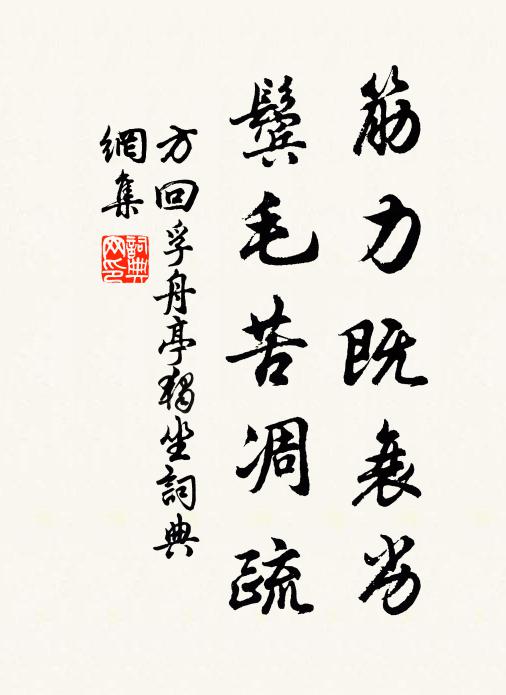 筋力既衰劣
鬓毛苦凋疏
方回孚舟亭獨坐詞典
網集
詞典网印